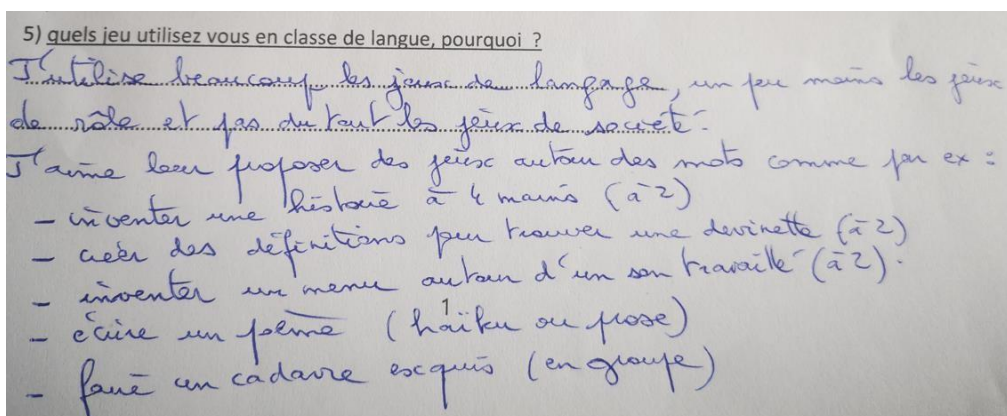 5) quels jeu utilisez vous en classe de langue, pourquoi ?
J'utilise beaucoup les jeux de langage, un peu moins les jeux
de rôle et pas du tout les jeux de société.
J'aime leur proposer des jeux autour des mots comme par ex :
- inventer une histoire à 4 mains (à 2)
- créer des définitions pour trouver une devinette (à 2)
- inventer un menu autour d'un son travaillé (à 2).
1
- écrire un poème (haïku ou prose)
- faire un cadavre exquis (en groupe)